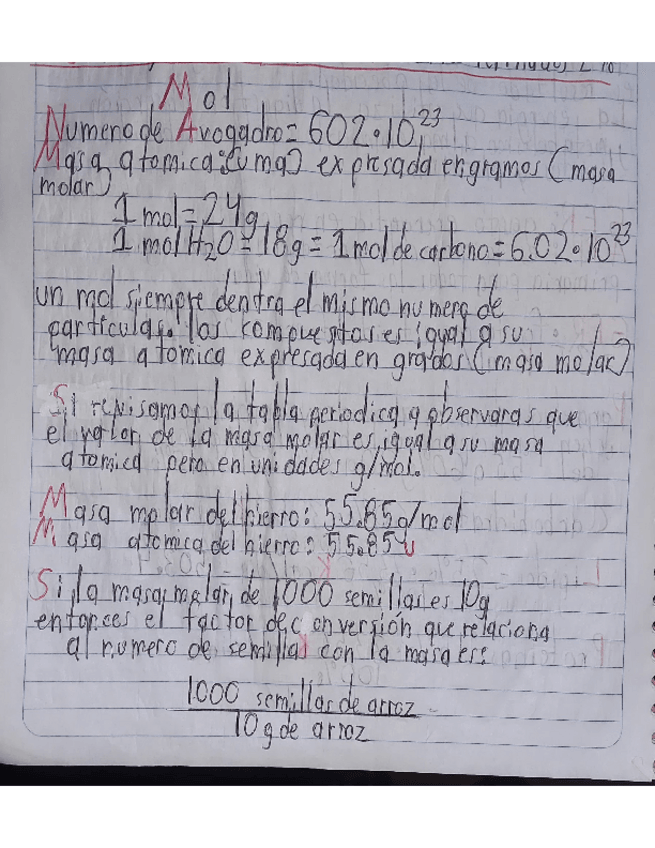 Mol
Numero de Avogadro = 602•10²³
Masa atomica: (uma) expresada en gramos (masa
molar)
1 mol = 24g
1 mol H₂O = 18g = 1 mol de carbono = 6.02•10²³
un mol siempre dentra el mismo numero de
particulas. los kompuestos es igual a su
masa atomica expresada en grados (masa molar)
Si revisamos la tabla periodica a observaras que
el valor de la masa molar es igual a su masa
atomica pero en unidades g/mol.
Masa molar del hierro: 55.85g/mol
Masa atomica del hierro: 55.85u
Si la masa molar de 1000 semillas es 10g
entonces el factor de conversión que relaciona
al numero de semillas con la masa es:
1000 semillas de arroz
10g de arroz